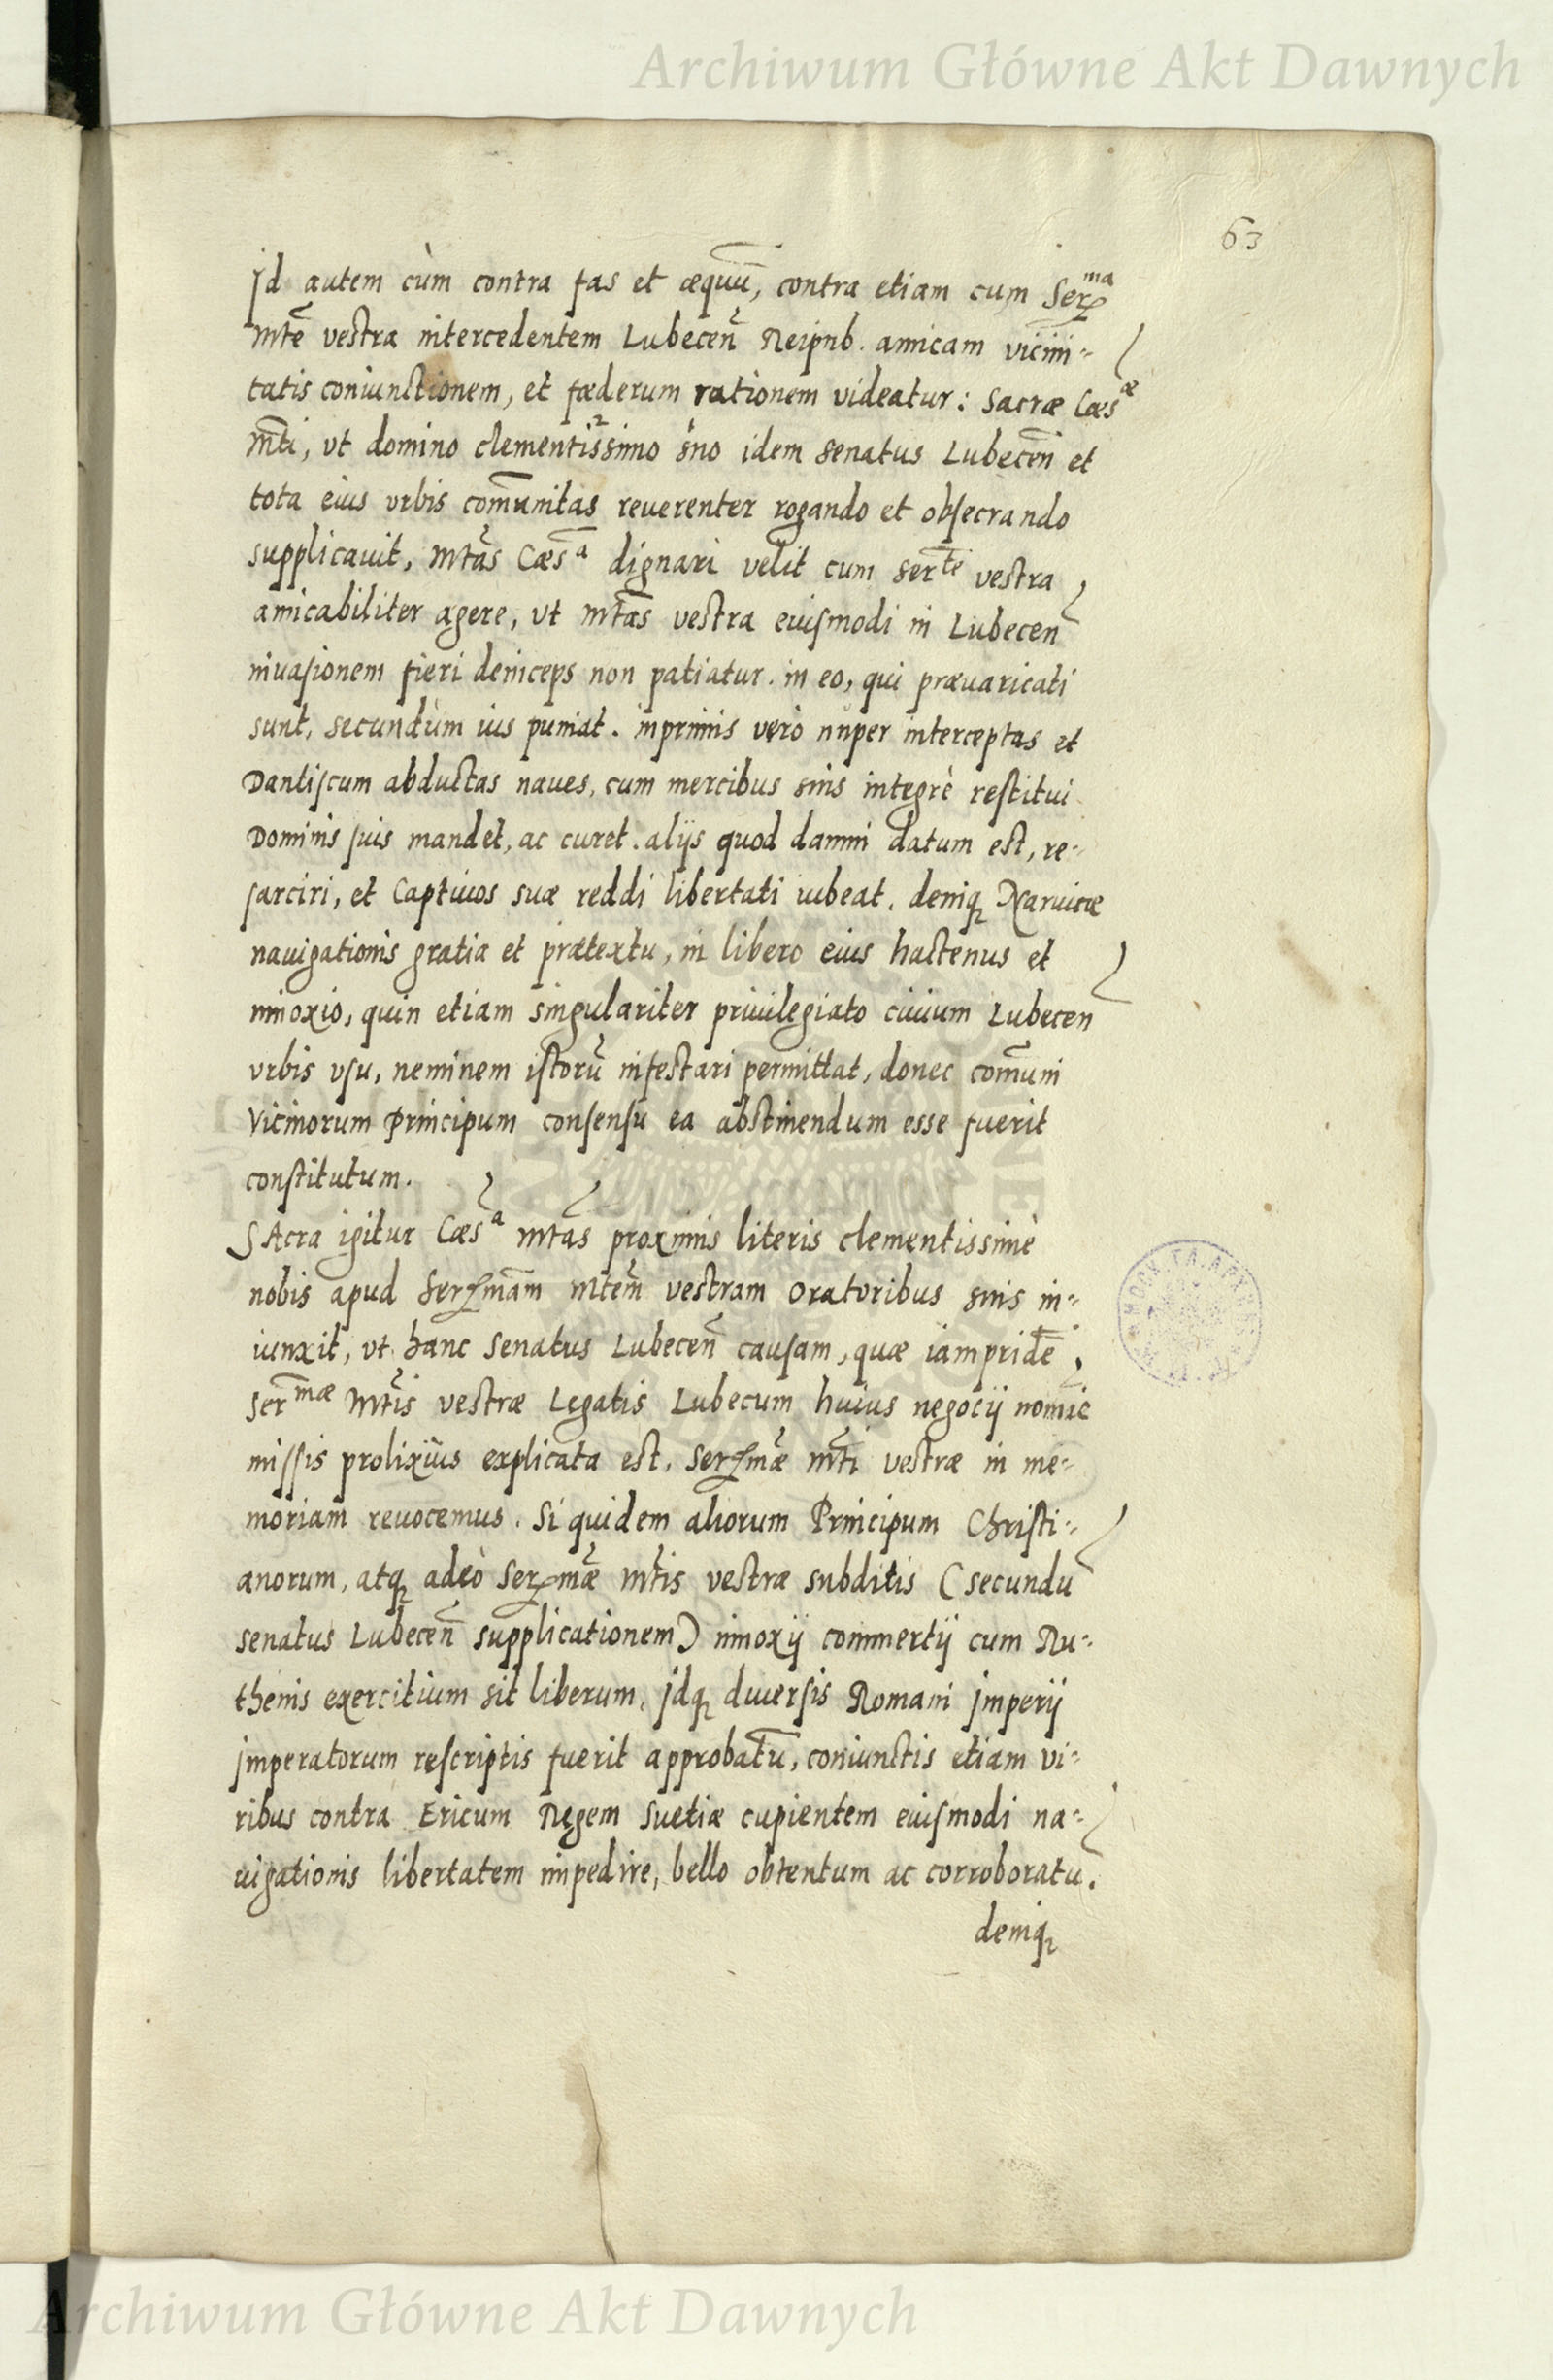 Archiwum Główne Akt Dawnych
63
Id autem cùm contra fas et æquū, contra etiam cum Ser^ma
Mtē vestra intercedentem Lubecen̄ Reipub. amicam vicini=
tatis coniunctionem, et fœderum rationem videatur: Sacræ Cæs^æ
Mti, vt domino clementissimo sūo idem Senatus Lubecen̄ et
tota eius vrbis com̄unitas reuerenter rogando et obsecrando
supplicauit, Mtās Cæs^a dignari velit cum Ser^te vestra
amicabiliter agere, vt Mtās vestra eiusmodi in Lubecen̄
inuasionem fieri deinceps non patiatur. in eo, qui præuaricati
sunt, secundùm ius puniat. inprimis verò nuper interceptas et
Dantiscum abductas naues, cum mercibus suis integrè restitui
Dominis suis mandet, ac curet. alijs quod damni datum est, re=
sarciri, et Captiuos suæ reddi libertati iubeat. deniq̨ Naruicæ
nauigationis gratia et prætextu, in libero eius hactenus et
innoxio, quin etiam singulariter priuilegiato ciuium Lubecen̄
vrbis vsu, neminem istorū infestari permittat, donec com̄uni
Vicinorum Principum consensu ea abstinendum esse fuerit
constitutum.
SAcra igitur Cæs^a Mtās proximis literis clementissimè
nobis apud Serm̄am Mtēm vestram Oratoribus suis in=
iunxit, vt hanc Senatus Lubecen̄ causam, quæ iampridē
Ser^mæ Mtīs vestræ Legatis Lubecum huius negocij nom̄ie
missis prolixiùs explicata est, Serm̄æ Mtī vestræ in me=
moriam reuocemus. Si quidem aliorum Principum Christi=
anorum, atq̨ adeò Serm̄æ Mtīs vestræ subditis (secundū
senatus Lubecen̄ supplicationem) innoxij commertij cum Ru=
thenis exercitium sit liberum, idq̨ diuersis Romani Imperij
Imperatorum rescriptis fuerit approbatū, coniunctis etiam vi=
ribus contra Ericum Regem Suetiæ cupientem eiusmodi na=
uigationis libertatem impedire, bello obtentum ac corroboratū.
deniq̨
Archiwum Główne Akt Dawnych